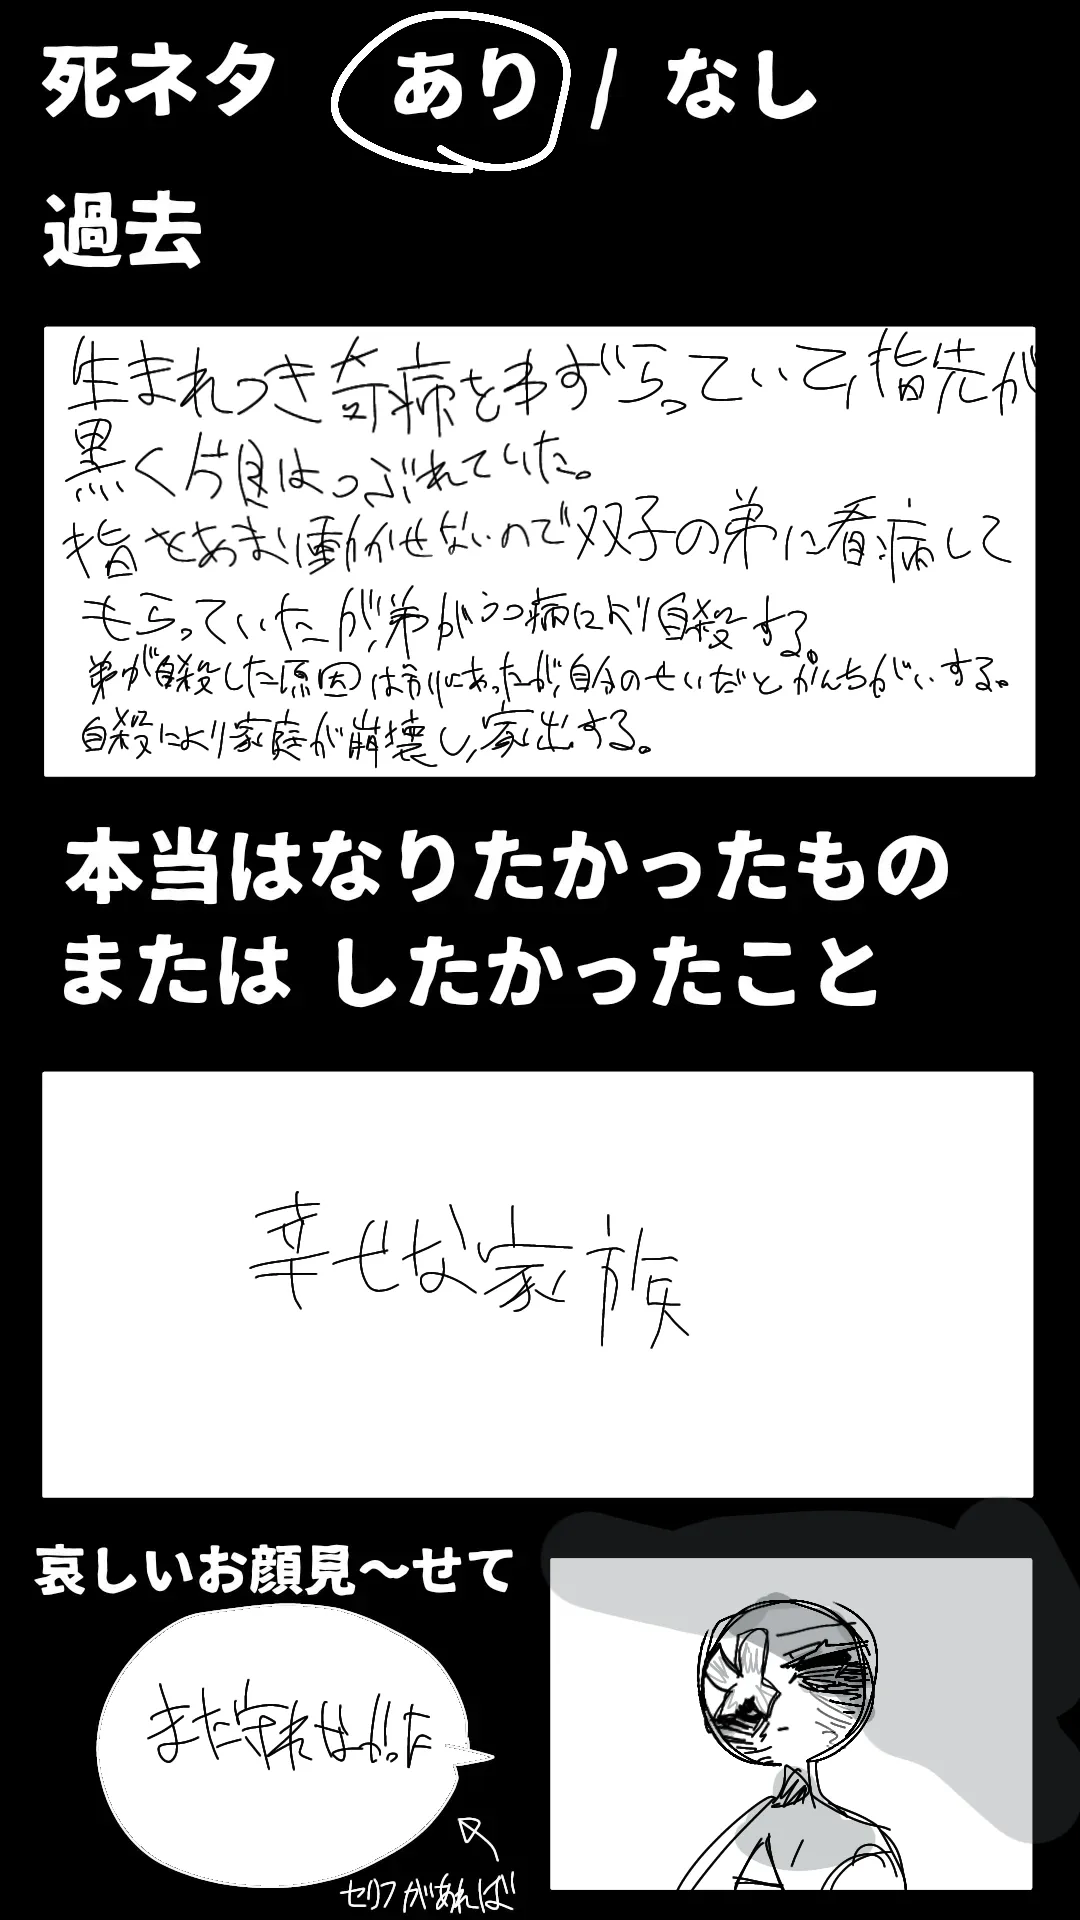 死ネタ あり / なし
過去
生まれつき奇病をわずらっていて、指先が
黒く片目はつぶれていた。
指をあまり動かせないので双子の弟に看病して
もらっていたが、弟がうつ病により自殺する。
弟が自殺した原因は別にあったが、自分のせいだとかんちがいする。
自殺により家庭が崩壊し、家出する。
本当はなりたかったもの
または したかったこと
幸せな家族
哀しいお顔見~せて
また守れなかった
セリフがあれば